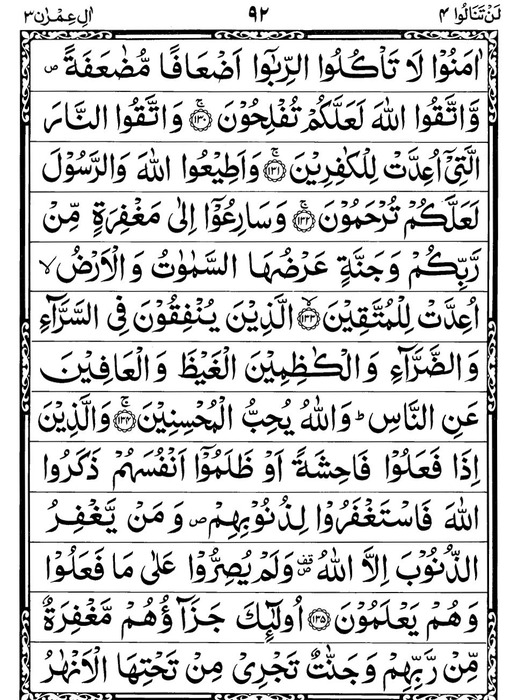 لَنۡ تَنَالُوۡا ۴ ۹۲ اٰلِ عِمۡرٰن ۳
اٰمَنُوۡا لَا تَاۡكُلُوا الرِّبٰٓوا اَضۡعَافًا مُّضٰعَفَةً ۖ
وَّاتَّقُوا اللّٰهَ لَعَلَّكُمۡ تُفۡلِحُوۡنَ ۚ‏﴿۱۳۰﴾ وَاتَّقُوا النَّارَ
الَّتِىۡۤ اُعِدَّتۡ لِلۡكٰفِرِيۡنَ ۚ‏﴿۱۳۱﴾ وَاَطِيۡعُوا اللّٰهَ وَالرَّسُوۡلَ
لَعَلَّكُمۡ تُرۡحَمُوۡنَ ۚ‏﴿۱۳۲﴾ وَسَارِعُوۡۤا اِلٰى مَغۡفِرَةٍ مِّنۡ
رَّبِّكُمۡ وَجَنَّةٍ عَرۡضُهَا السَّمٰوٰتُ وَالۡاَرۡضُۙ
اُعِدَّتۡ لِلۡمُتَّقِيۡنَۙ‏﴿۱۳۳﴾ الَّذِيۡنَ يُنۡفِقُوۡنَ فِى السَّرَّآءِ
وَالضَّرَّآءِ وَالۡكٰظِمِيۡنَ الۡغَيۡظَ وَالۡعَافِيۡنَ
عَنِ النَّاسِ‌ؕ وَاللّٰهُ يُحِبُّ الۡمُحۡسِنِيۡنَ‌ۚ‏﴿۱۳۴﴾ وَالَّذِيۡنَ
اِذَا فَعَلُوۡا فَاحِشَةً اَوۡ ظَلَمُوۡۤا اَنۡفُسَهُمۡ ذَكَرُوا
اللّٰهَ فَاسۡتَغۡفَرُوۡا لِذُنُوۡبِهِمۡ ۖ وَمَنۡ يَّغۡفِرُ
الذُّنُوۡبَ اِلَّا اللّٰهُ ۖ وَلَمۡ يُصِرُّوۡا عَلٰى مَا فَعَلُوۡا
وَهُمۡ يَعۡلَمُوۡنَ‏﴿۱۳۵﴾ اُولٰٓٮِٕكَ جَزَآؤُهُمۡ مَّغۡفِرَةٌ
مِّنۡ رَّبِّهِمۡ وَجَنّٰتٌ تَجۡرِىۡ مِنۡ تَحۡتِهَا الۡاَنۡهٰرُ